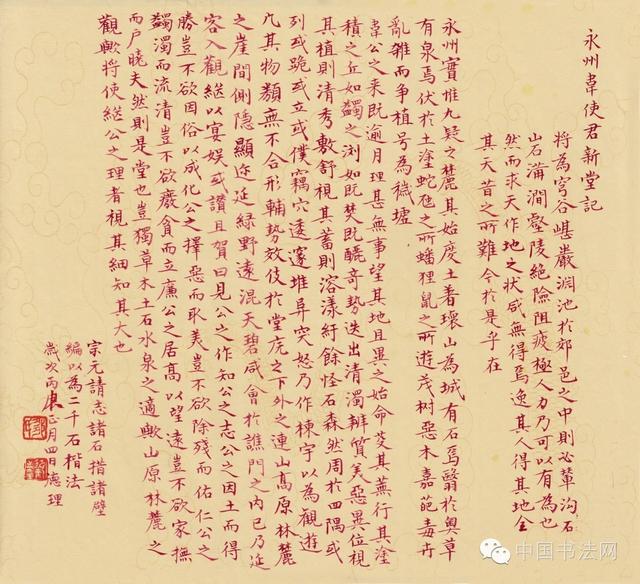 永州韋使君新堂記
將為穹谷嵁巖淵池於郊邑之中則必輦
山石溝澗壑陵絕險阻疲極人力乃可以有為也
然而求天作地之狀咸無得焉逸其人因其地全
其天昔之所難今於是乎在
永州實惟九疑之麓其始度土者環山為城有石焉翳於奧草
有泉焉伏於土塗蛇虺之所蟠狸鼠之所遊茂树惡木嘉葩毒卉
亂雜而争植号為穢墟
韋公之来既逾月理甚無事望其地且異之始命芟其蕪行其塗
積之丘如蠲之瀏如既焚既釃奇勢迭出清濁辨質美惡異位視
其植則清秀敷舒視其蓄則溶漾紆餘怪石森然周於四隅或
列或跪或立或僕竅穴逶邃堆阜突怒乃作棟宇以為觀遊
凡其物類無不合形輔勢效伎於堂庑之下外之連山高原林麓
之崖間側隱顯迩延綠野遠混天碧咸會於譙門之内已乃延
客入觀繼以宴娱或讃且賀曰見公之作知公之志公之因土而得
勝豈不欲因俗以成化公之擇惡而取美豈不欲除残而佑仁公之
蠲濁而流清豈不欲廢貪而立廉公之居高以望遠豈不欲家撫
而户曉夫然則是堂也豈獨草木土石水泉之適歟山原林麓之
觀歟將使繼公之理者視其細知其大也
宗元請志諸石措諸壁
編以為二千石楷法
歲次丙 正月四日 德理
中国书法网